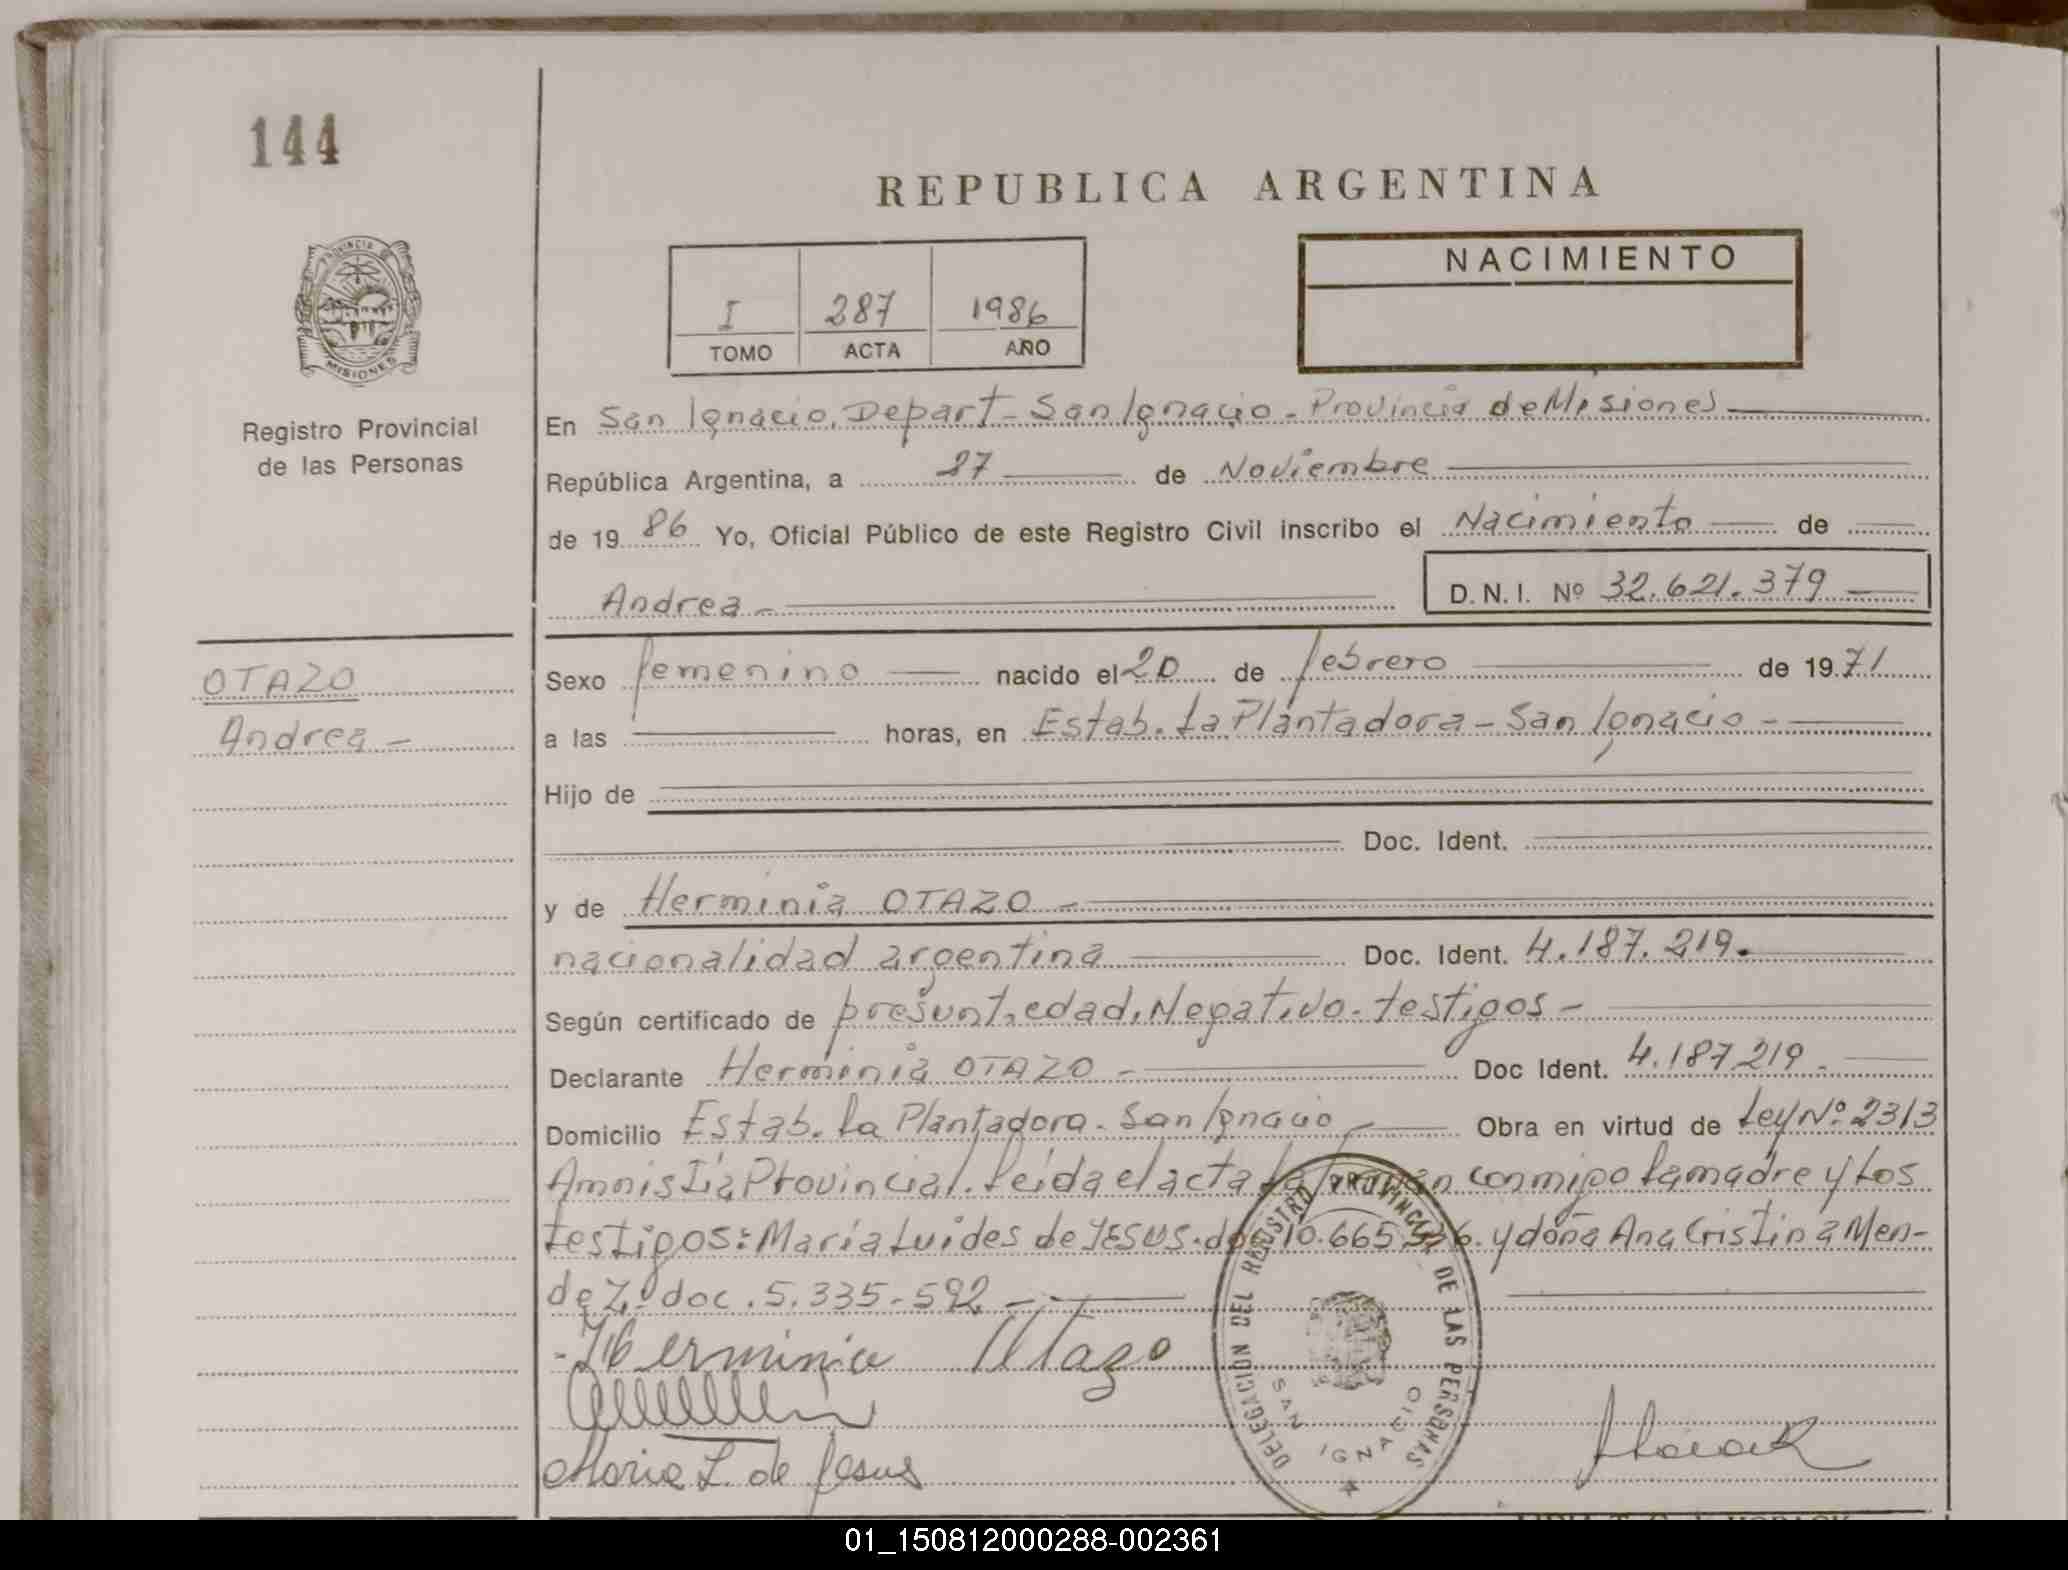 144
REPUBLICA ARGENTINA
PROVINCIA DE
MISIONES
Registro Provincial
de las Personas
I 287 1986
TOMO ACTA AÑO
NACIMIENTO
En San Ignacio, Depart- San Ignacio - Provincia de Misiones
República Argentina, a 27 de Noviembre
de 19 86 Yo, Oficial Público de este Registro Civil inscribo el Nacimiento de
Andrea - D. N. I. Nº 32.621.379
OTAZO
Andrea -
Sexo femenino nacido el 20 de febrero de 19 71
a las horas, en Estab. La Plantadora - San Ignacio -
Hijo de
Doc. Ident.
y de Herminia OTAZO -
nacionalidad argentina Doc. Ident. 4.187.219.
Según certificado de presunt, edad, Negativo - testigos -
Declarante Herminia OTAZO - Doc Ident. 4.187 219 -
Domicilio Estab. La Plantadora - San Ignacio Obra en virtud de Ley Nº 2313
Amnistía Provincial. Leída el acta la conmigo la madre y los
testigos: María Luides de JESUS. doc 10.665. y doña Ana Cristina Men-
dez. doc. 5.335.592 -
Herminia Otazo
Maria L. de Jesus
DELEGACION DEL REGISTRO PROVINCIAL DE LAS PERSONAS
SAN IGNACIO
01_150812000288-002361